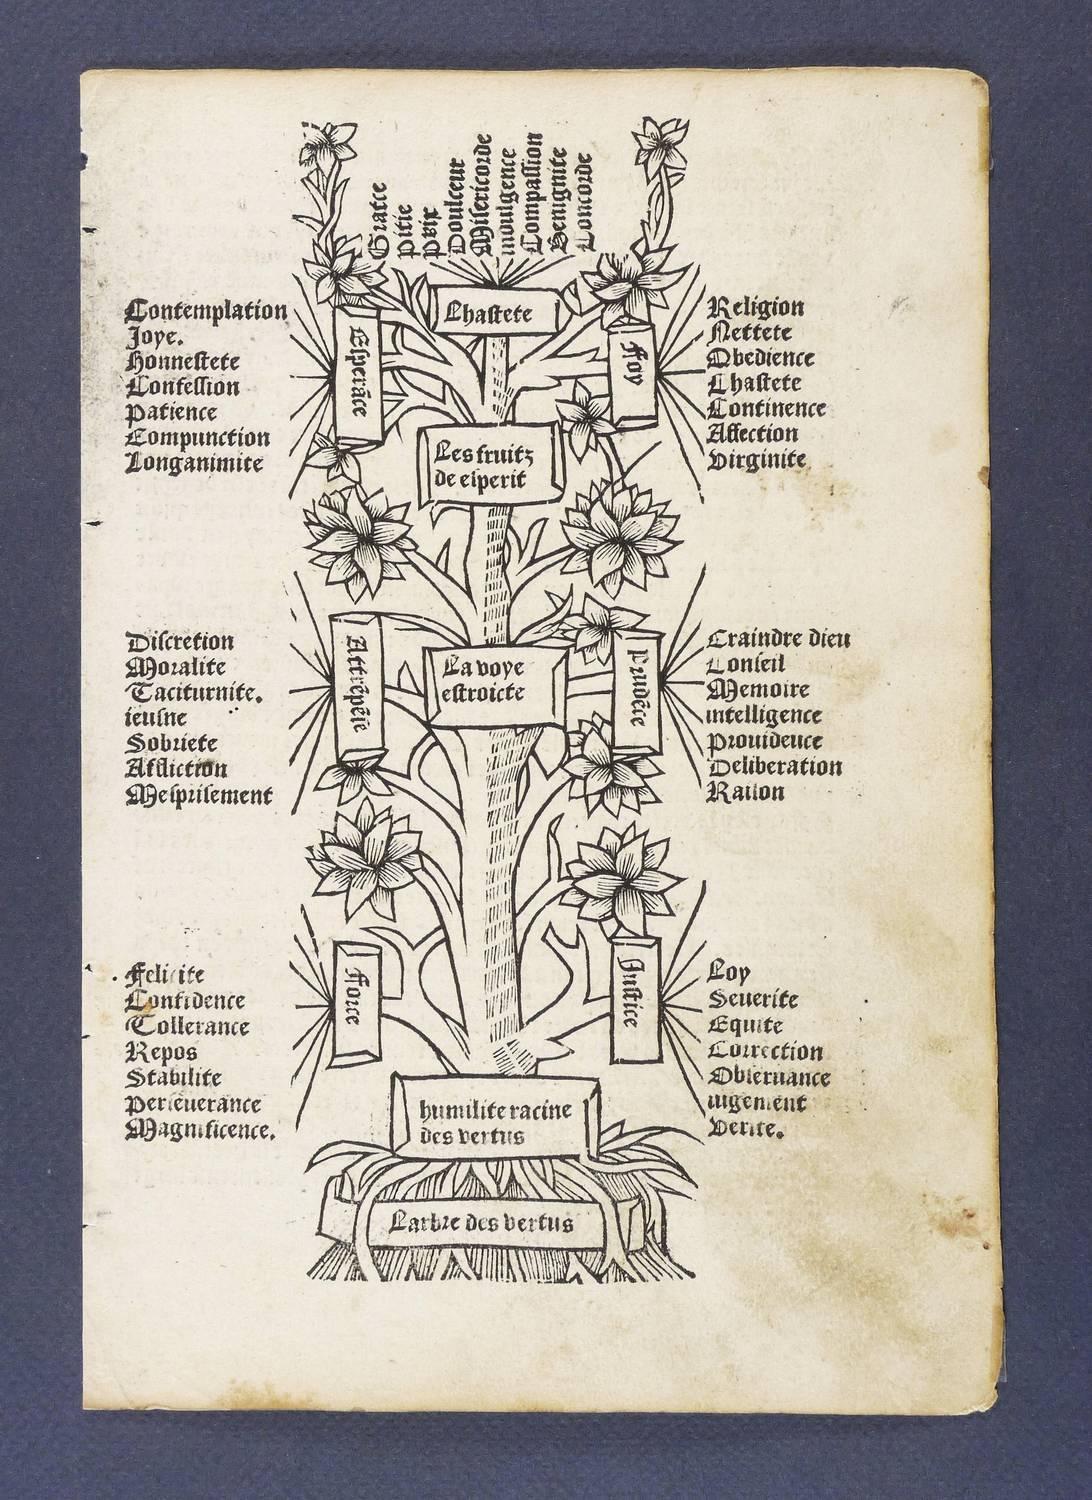 Gratce
Pitie
Paix
Doulceur
Misericorde
indulgence
Compassion
Benignite
Concorde
Chastete
Esperāce
Foy
Contemplation
Joye.
Honnestete
Confession
Patience
Compunction
Longanimite
Religion
Nettete
Obedience
Chastete
Continence
Affection
Virginite
Les fruitz
de esperit
Attrēpēie
La voye
estroicte
Prudēce
Discretion
Moralite
Taciturnite.
ieusne
Sobriete
Affliction
Mesprisement
Craindre dieu
Conseil
Memoire
intelligence
Prouidence
Deliberation
Raison
Force
Justice
Felicite
Confidence
Tollerance
Repos
Stabilite
Perseuerance
Magnificence.
Loy
Seuerite
Equite
Correction
Obseruance
iugement
Verite.
humilite racine
des vertus
Larbre des vertus